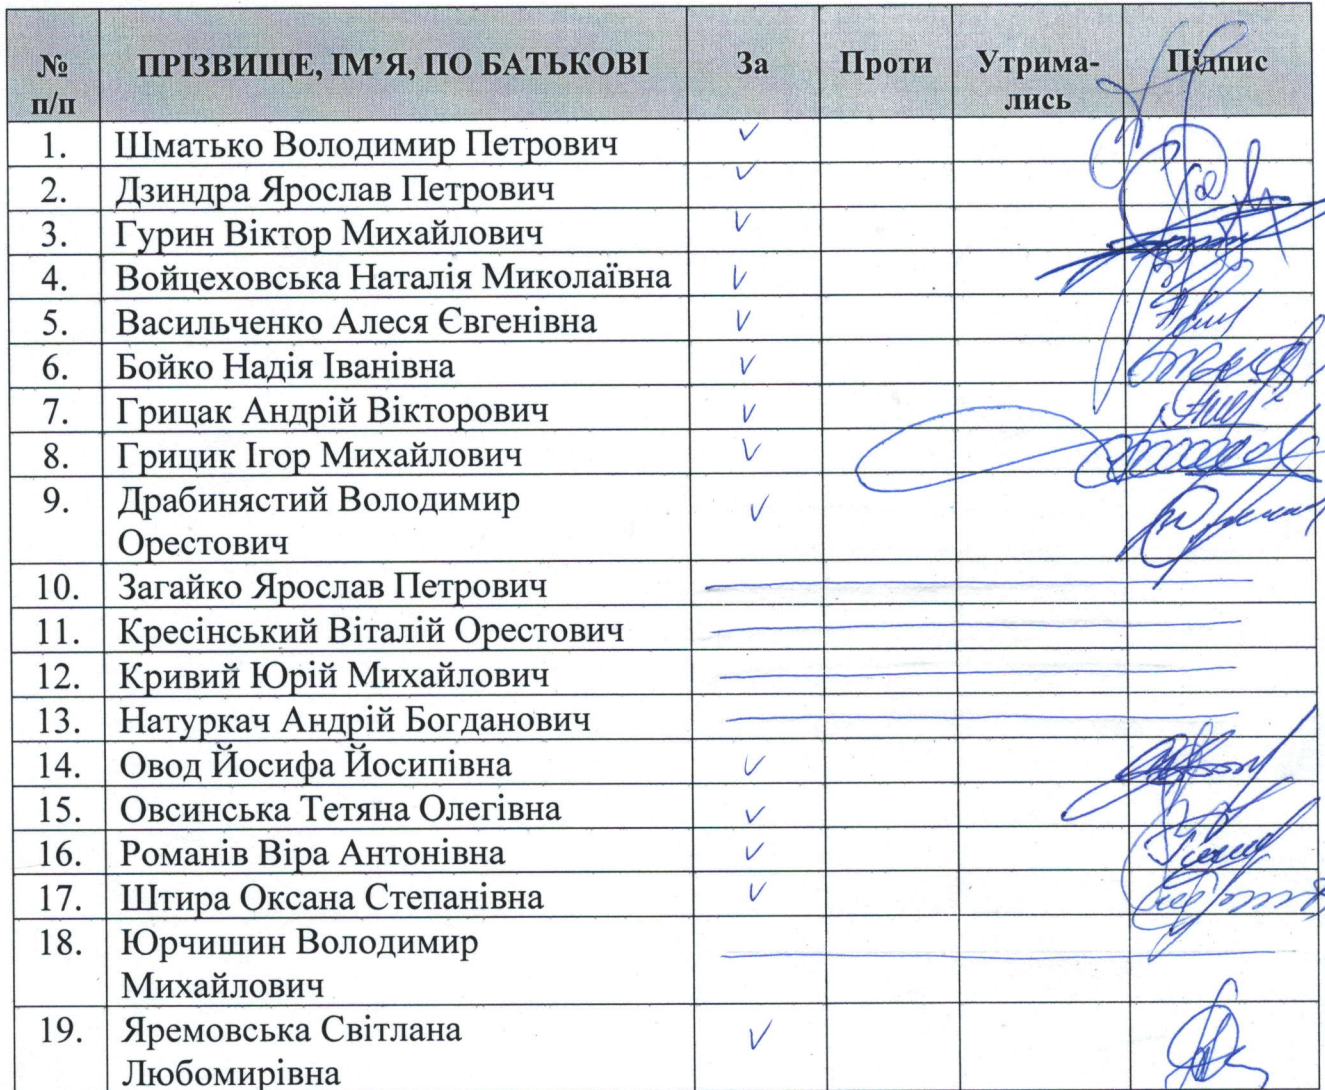 № п/п ПРІЗВИЩЕ, ІМ’Я, ПО БАТЬКОВІ За Проти Утрима-лись Підпис
1. Шматько Володимир Петрович
2. Дзиндра Ярослав Петрович
3. Гурин Віктор Михайлович
4. Войцеховська Наталія Миколаївна
5. Васильченко Алеся Євгенівна
6. Бойко Надія Іванівна
7. Грицак Андрій Вікторович
8. Грицик Ігор Михайлович
9. Драбинястий Володимир
Орестович
10. Загайко Ярослав Петрович
11. Кресінський Віталій Орестович
12. Кривий Юрій Михайлович
13. Натуркач Андрій Богданович
14. Овод Йосифа Йосипівна
15. Овсинська Тетяна Олегівна
16. Романів Віра Антонівна
17. Штира Оксана Степанівна
18. Юрчишин Володимир
Михайлович
19. Яремовська Світлана
Любомирівна